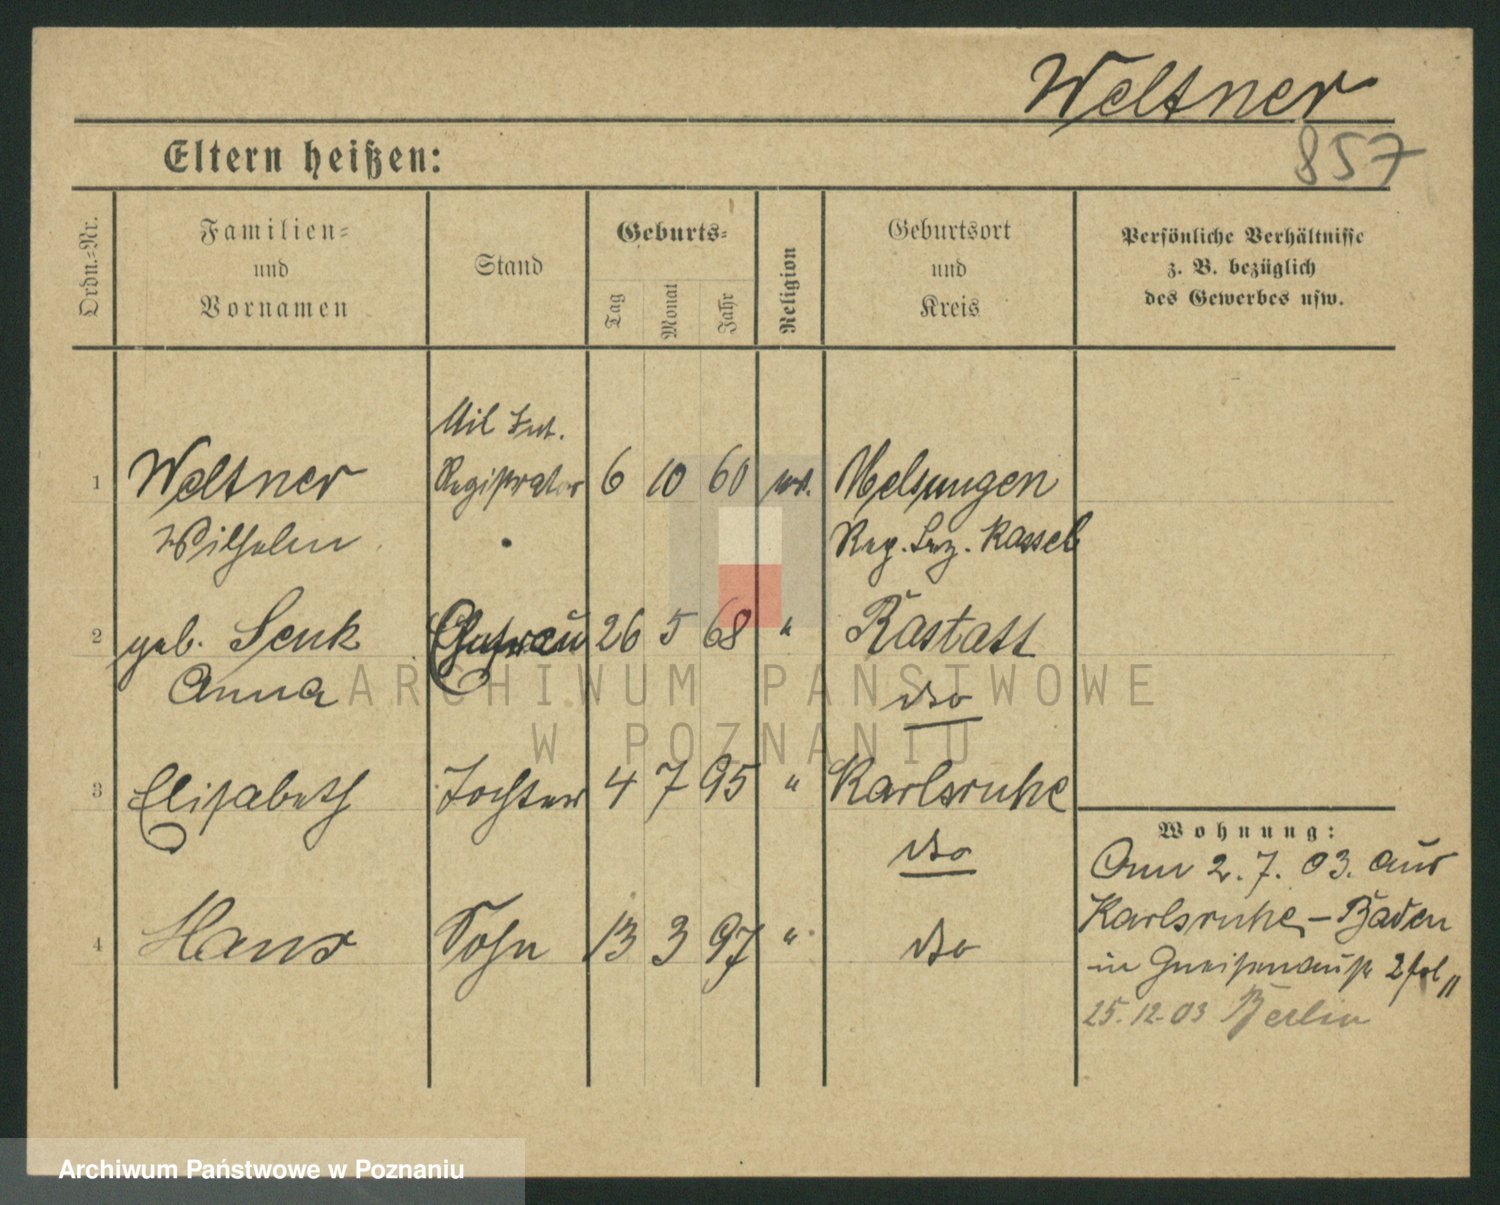 Weltner
857
Eltern heißen:
Ordn.-Nr.
Familien-
und
Vornamen
Stand
Geburts-
Tag
Monat
Jahr
Religion
Geburtsort
und
Kreis
Persönliche Verhältnisse
z. B. bezüglich
des Gewerbes usw.
Mil Int.
1 Weltner Registrator 6 10 60 Melsungen
Wilhelm Reg. Bez. Kassel
2 geb. Senk Ehefrau 26 5 68 " Rastatt
Anna dto
3 Elisabeth Tochter 4 7 95 " Karlsruhe
dto
4 Hans Sohn 13 3 97 " dto
Wohnung:
Am 2. 7. 03. aus
Karlsruhe - Baden
in Gneisenaustr 2
25. 12. 03 Berlin
ARCHIWUM PAŃSTWOWE
W POZNANIU
Archiwum Państwowe w Poznaniu